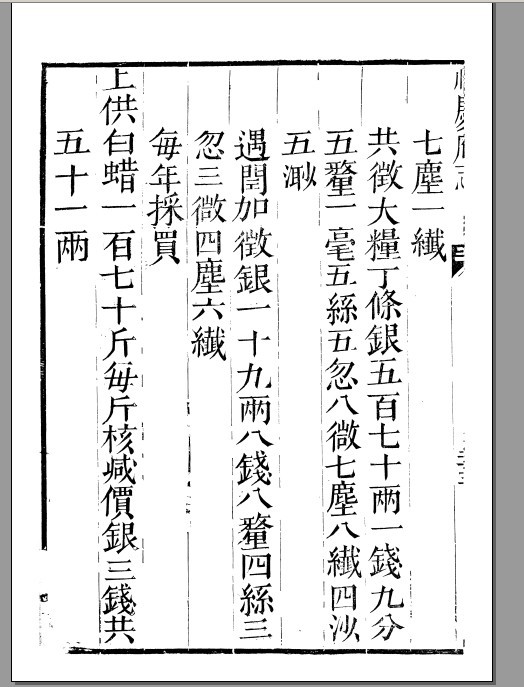 慶府志
七塵一纖
共徵大糧丁條銀五百七十兩一錢九分
五釐二毫五絲五忽八微七塵八纖四沙
五渺
遇閏加徵銀一十九兩八錢八釐四絲三
忽三微四塵六纖
每年採買
上供白蜡一百七十斤每斤核减價銀三錢共
五十一兩